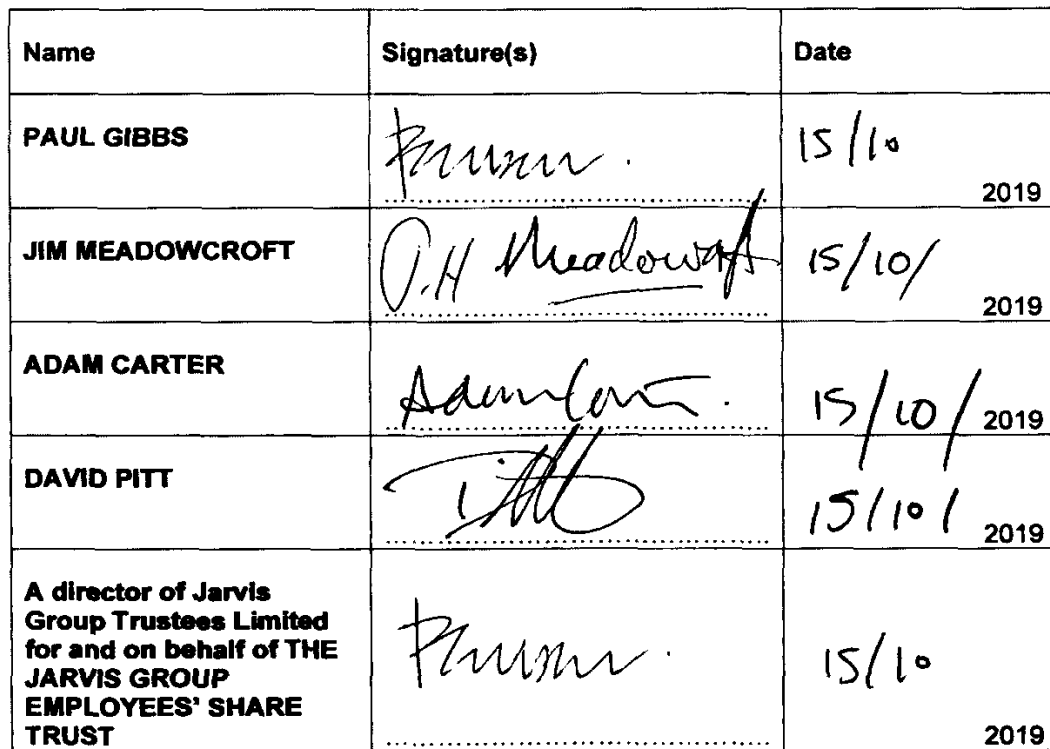 Name Signature(s) Date
PAUL GIBBS 15/10
2019
JIM MEADOWCROFT J.H Meadowcroft 15/10/
2019
ADAM CARTER Adam Carter. 15/10/ 2019
DAVID PITT 15/10/ 2019
A director of Jarvis
Group Trustees Limited
for and on behalf of THE
JARVIS GROUP
EMPLOYEES' SHARE
TRUST
15/10
2019